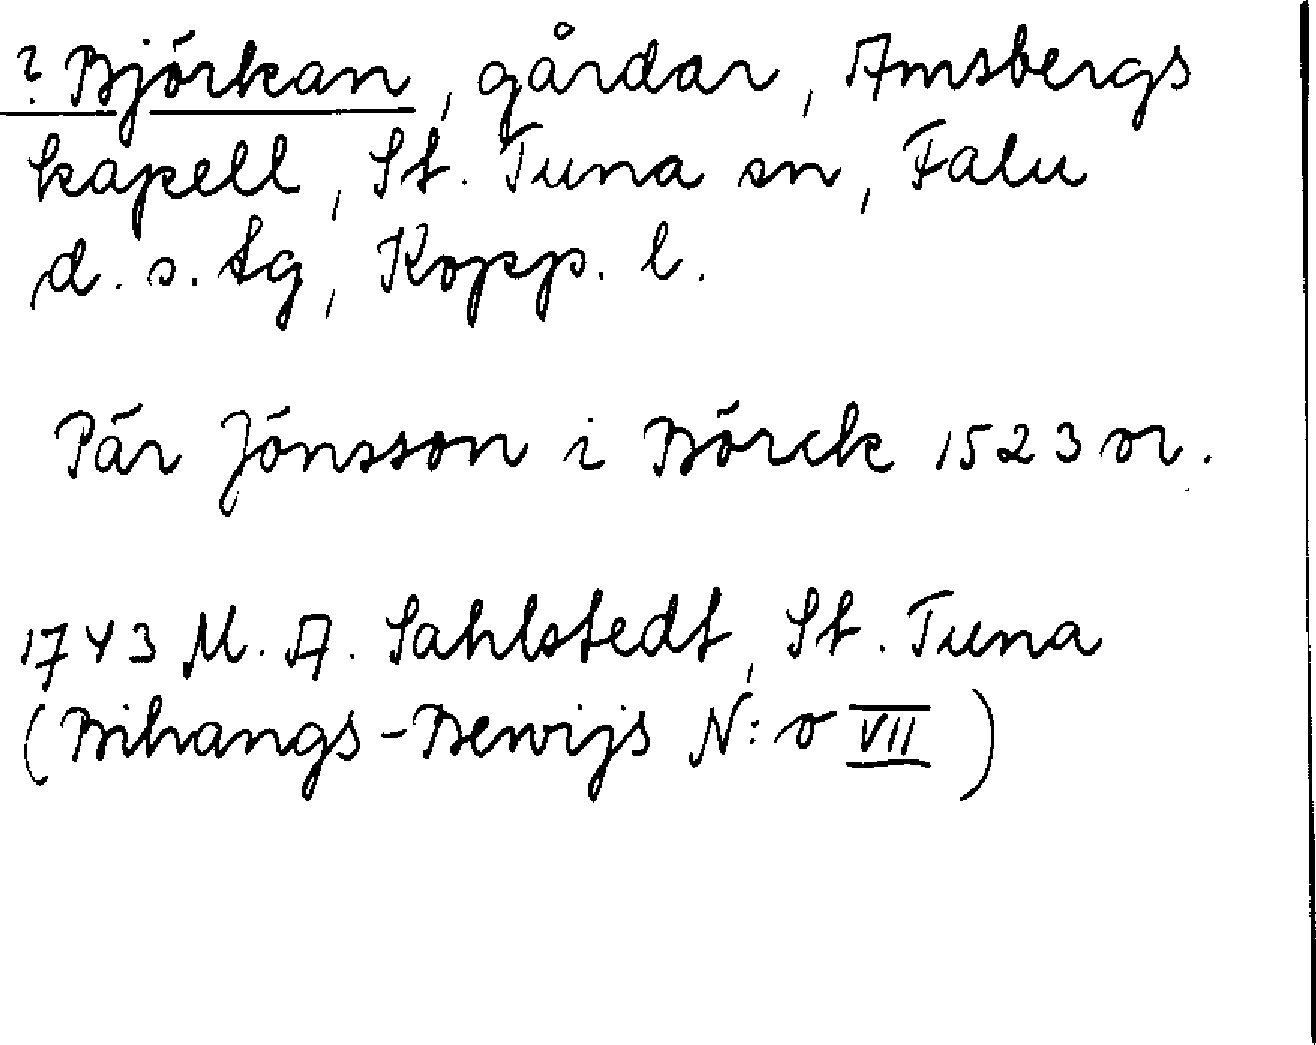 ? Björkan, gårdar, Amsbergs
kapell, St. Tuna sn, Falu
d. s. tg, Kopp. l.
Pär Jönsson i Börck 1523 or.
1743 M. A. Sahlstedt, St. Tuna
(Bihangs-Bewijs N:o VII)